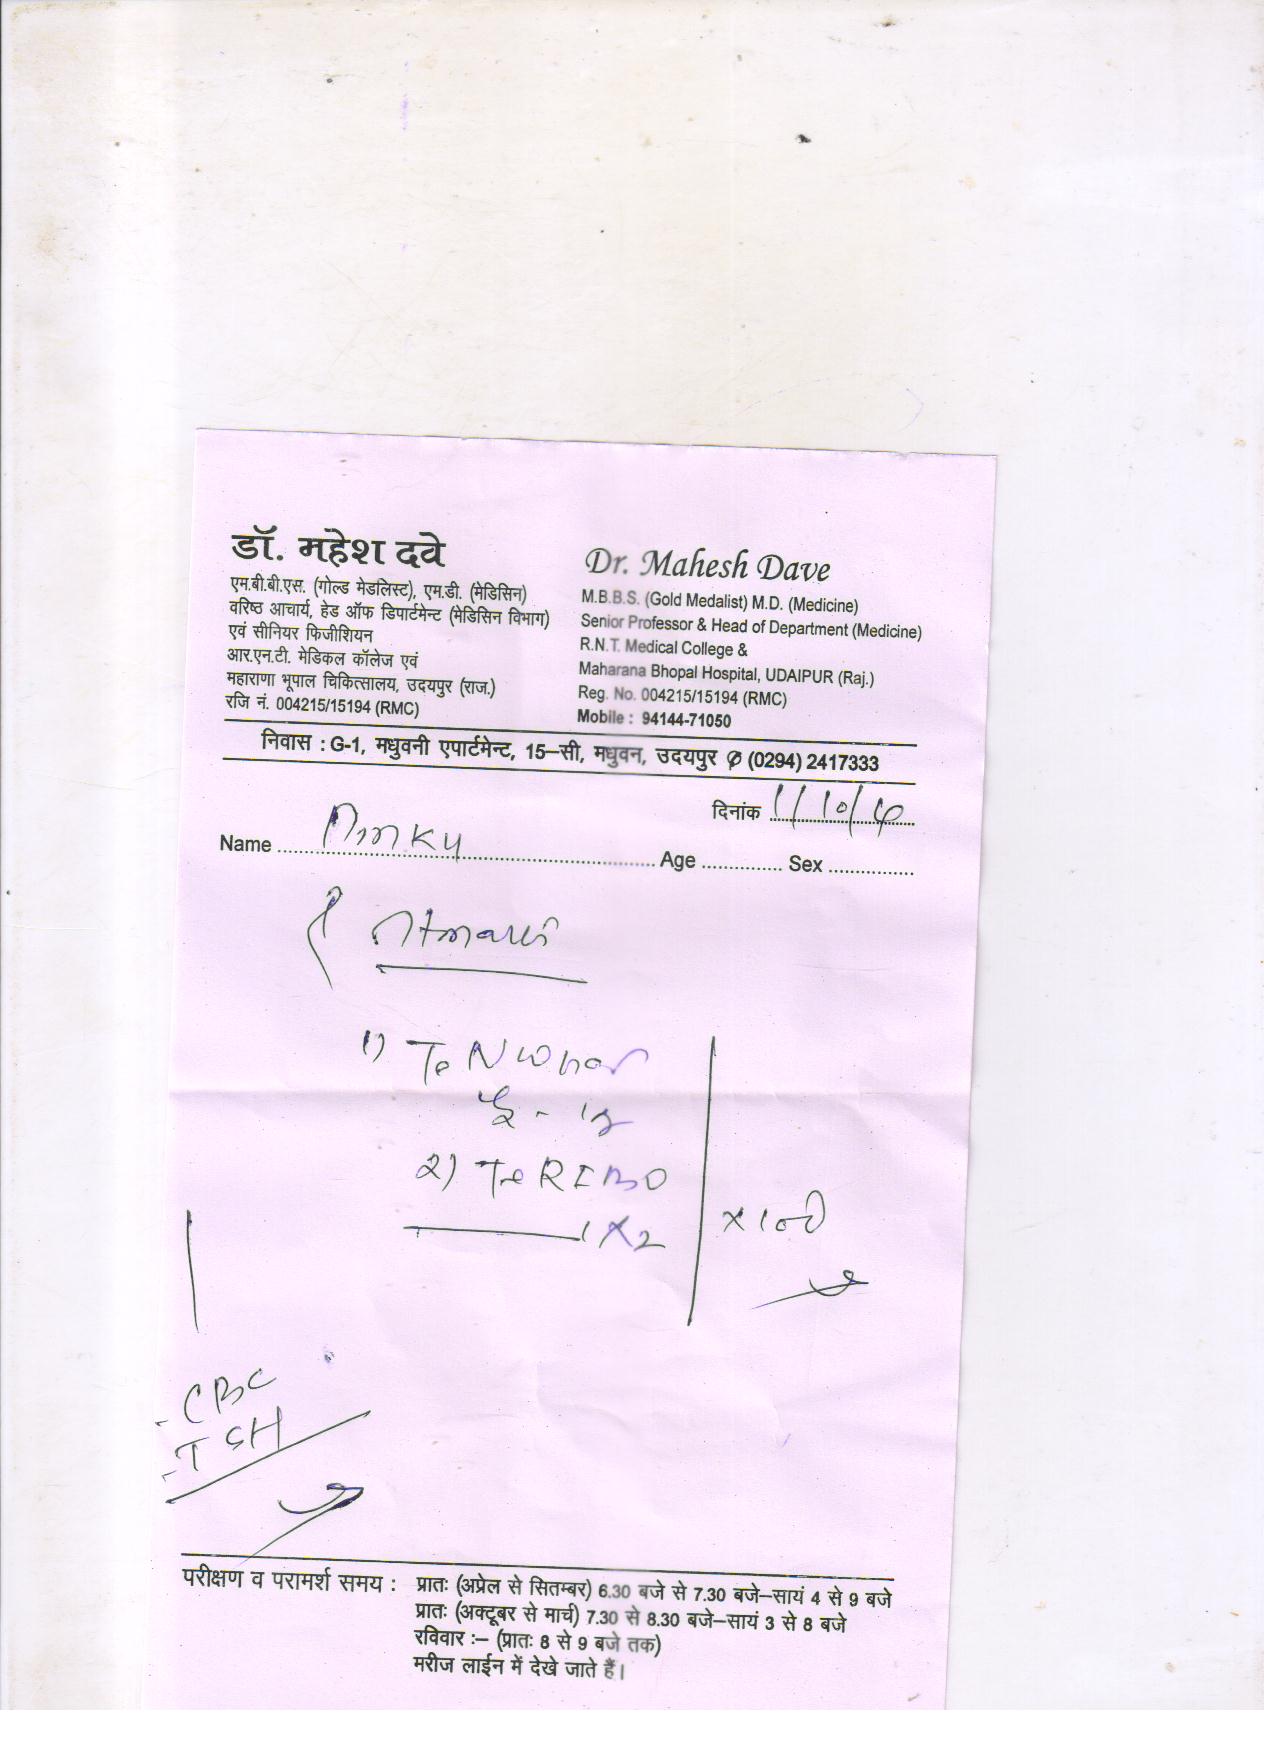 डॉ. महेश दवे
एम.बी.बी.एस. (गोल्ड मेडलिस्ट), एम.डी. (मेडिसिन)
वरिष्ठ आचार्य, हेड ऑफ डिपार्टमेन्ट (मेडिसिन विभाग)
एवं सीनियर फिजीशियन
आर.एन.टी. मेडिकल कॉलेज एवं
महाराणा भूपाल चिकित्सालय, उदयपुर (राज.)
रजि नं. 004215/15194 (RMC)
Dr. Mahesh Dave
M.B.B.S. (Gold Medalist) M.D. (Medicine)
Senior Professor & Head of Department (Medicine)
R.N.T. Medical College &
Maharana Bhopal Hospital, UDAIPUR (Raj.)
Reg. No. 004215/15194 (RMC)
Mobile : 94144-71050
निवास : G-1, मधुवनी एपार्टमेन्ट, 15–सी, मधुवन, उदयपुर ✆ (0294) 2417333
दिनांक 1/10/
Name Age Sex
1)
2) Te RIBO
1 X 2
x 10
- CBC
- TSH
परीक्षण व परामर्श समय : प्रातः (अप्रेल से सितम्बर) 6.30 बजे से 7.30 बजे–सायं 4 से 9 बजे
प्रातः (अक्टूबर से मार्च) 7.30 से 8.30 बजे–सायं 3 से 8 बजे
रविवार :– (प्रातः 8 से 9 बजे तक)
मरीज लाईन में देखे जाते हैं।